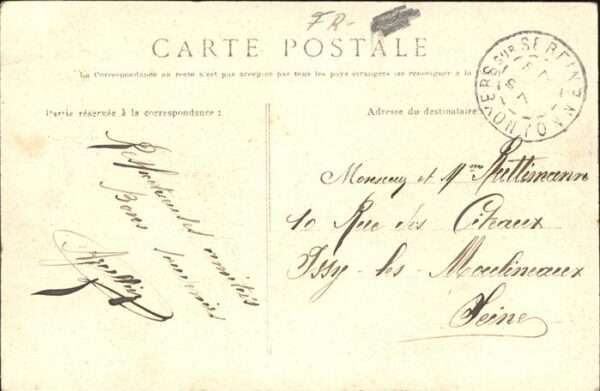 FR-
CARTE POSTALE
La Correspondance au recto n'est pas acceptée par tous les pays étrangers (se renseigner à la
Partie réservée à la correspondance :
Adresse du destinataire
NOYERS SUR SEREIN (YONNE)
Respectueuses amitiés
Bons souvenirs
Monsieur et Mme Ruttimann
10 Rue des Citeaux
Issy-les-Moulineaux
Seine